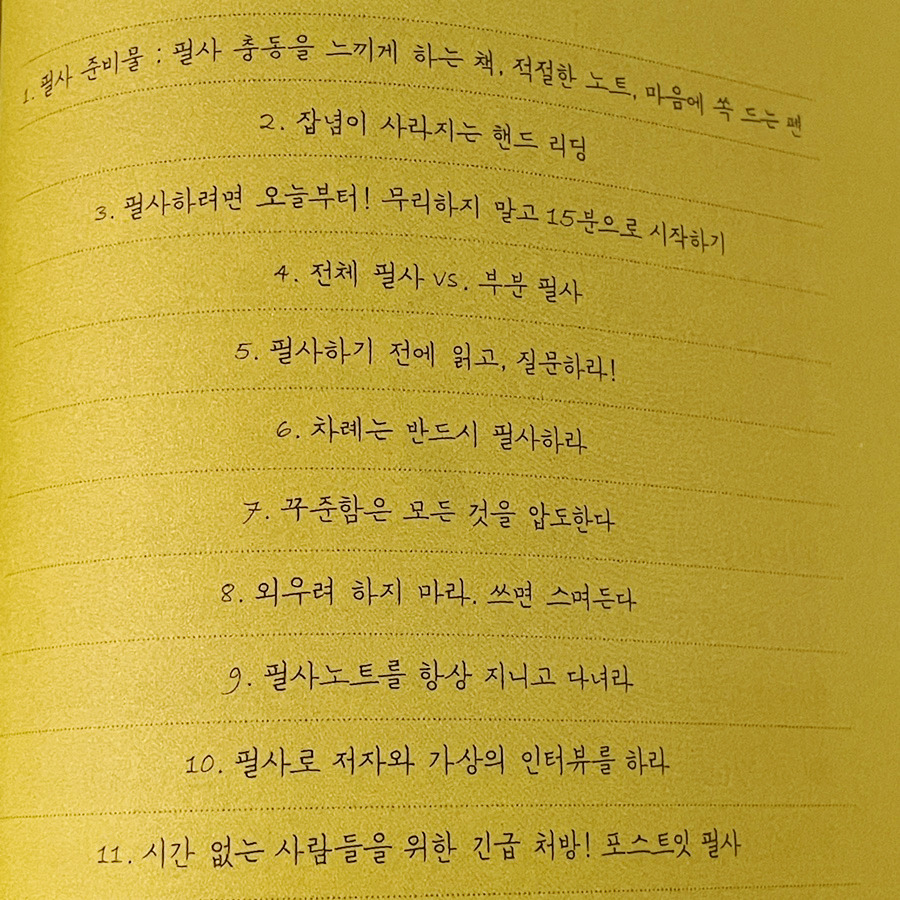 1. 필사 준비물 : 필사 충동을 느끼게 하는 책, 적절한 노트, 마음에 쏙 드는 펜
2. 잡념이 사라지는 핸드 리딩
3. 필사하려면 오늘부터! 무리하지 말고 15분으로 시작하기
4. 전체 필사 vs. 부분 필사
5. 필사하기 전에 읽고, 질문하라!
6. 차례는 반드시 필사하라
7. 꾸준함은 모든 것을 압도한다
8. 외우려 하지 마라. 쓰면 스며든다
9. 필사노트를 항상 지니고 다녀라
10. 필사로 저자와 가상의 인터뷰를 하라
11. 시간 없는 사람들을 위한 긴급 처방! 포스트잇 필사